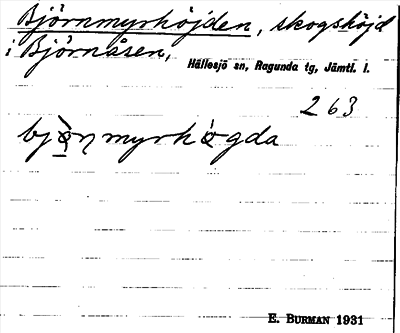 Björnmyrhöjden, skogshöjd
i Björnåsen,
Hällesjö sn, Ragunda tg, Jämtl. l.
263
bjò̱ŋmyrhògda
E. BURMAN 1931